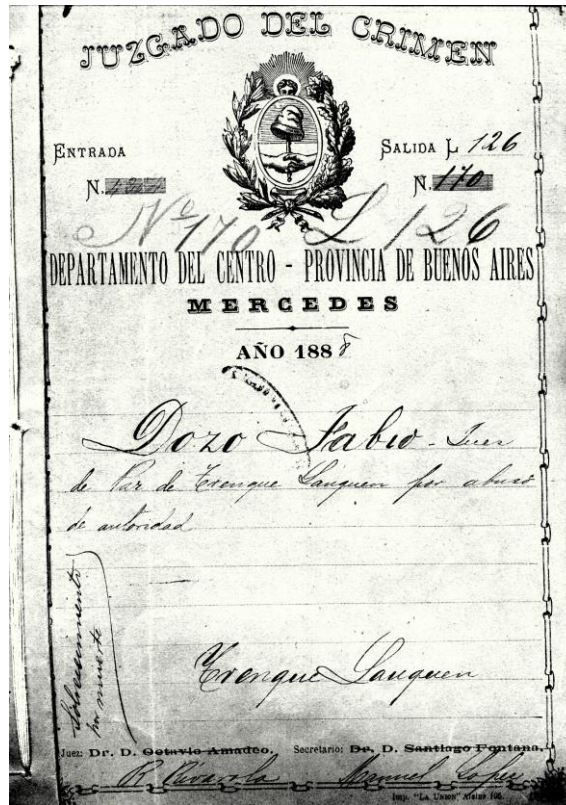 JUZGADO DEL CRIMEN
ENTRADA
SALIDA L 126
N.
N. 170
Nº 170 L 126
DEPARTAMENTO DEL CENTRO - PROVINCIA DE BUENOS AIRES
MERCEDES
AÑO 1888
Dozo Fabio - Juez
de Paz de Trenque Lauquen por abuso
de autoridad
Sobreseimiento
por muerte
Trenque Lauquen
Juez: Dr. D. Octavio Amadeo. Secretario: Dr. D. Santiago Fontana.
R. Rivarola Manuel López
Imp. "LA UNION"